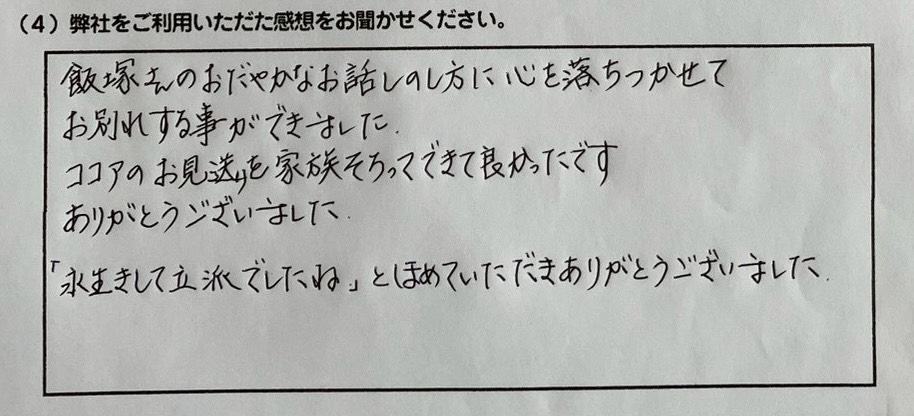 (4) 弊社をご利用いただた感想をお聞かせください。
飯塚さんのおだやかなお話しのし方に心を落ちつかせて
お別れする事ができました.
ココアのお見送りを家族そろってできて良かったです
ありがとうございました.
「永生きして立派でしたね」とほめていただきありがとうございました.